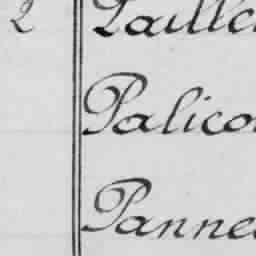 2 Paille
Palico
Panne